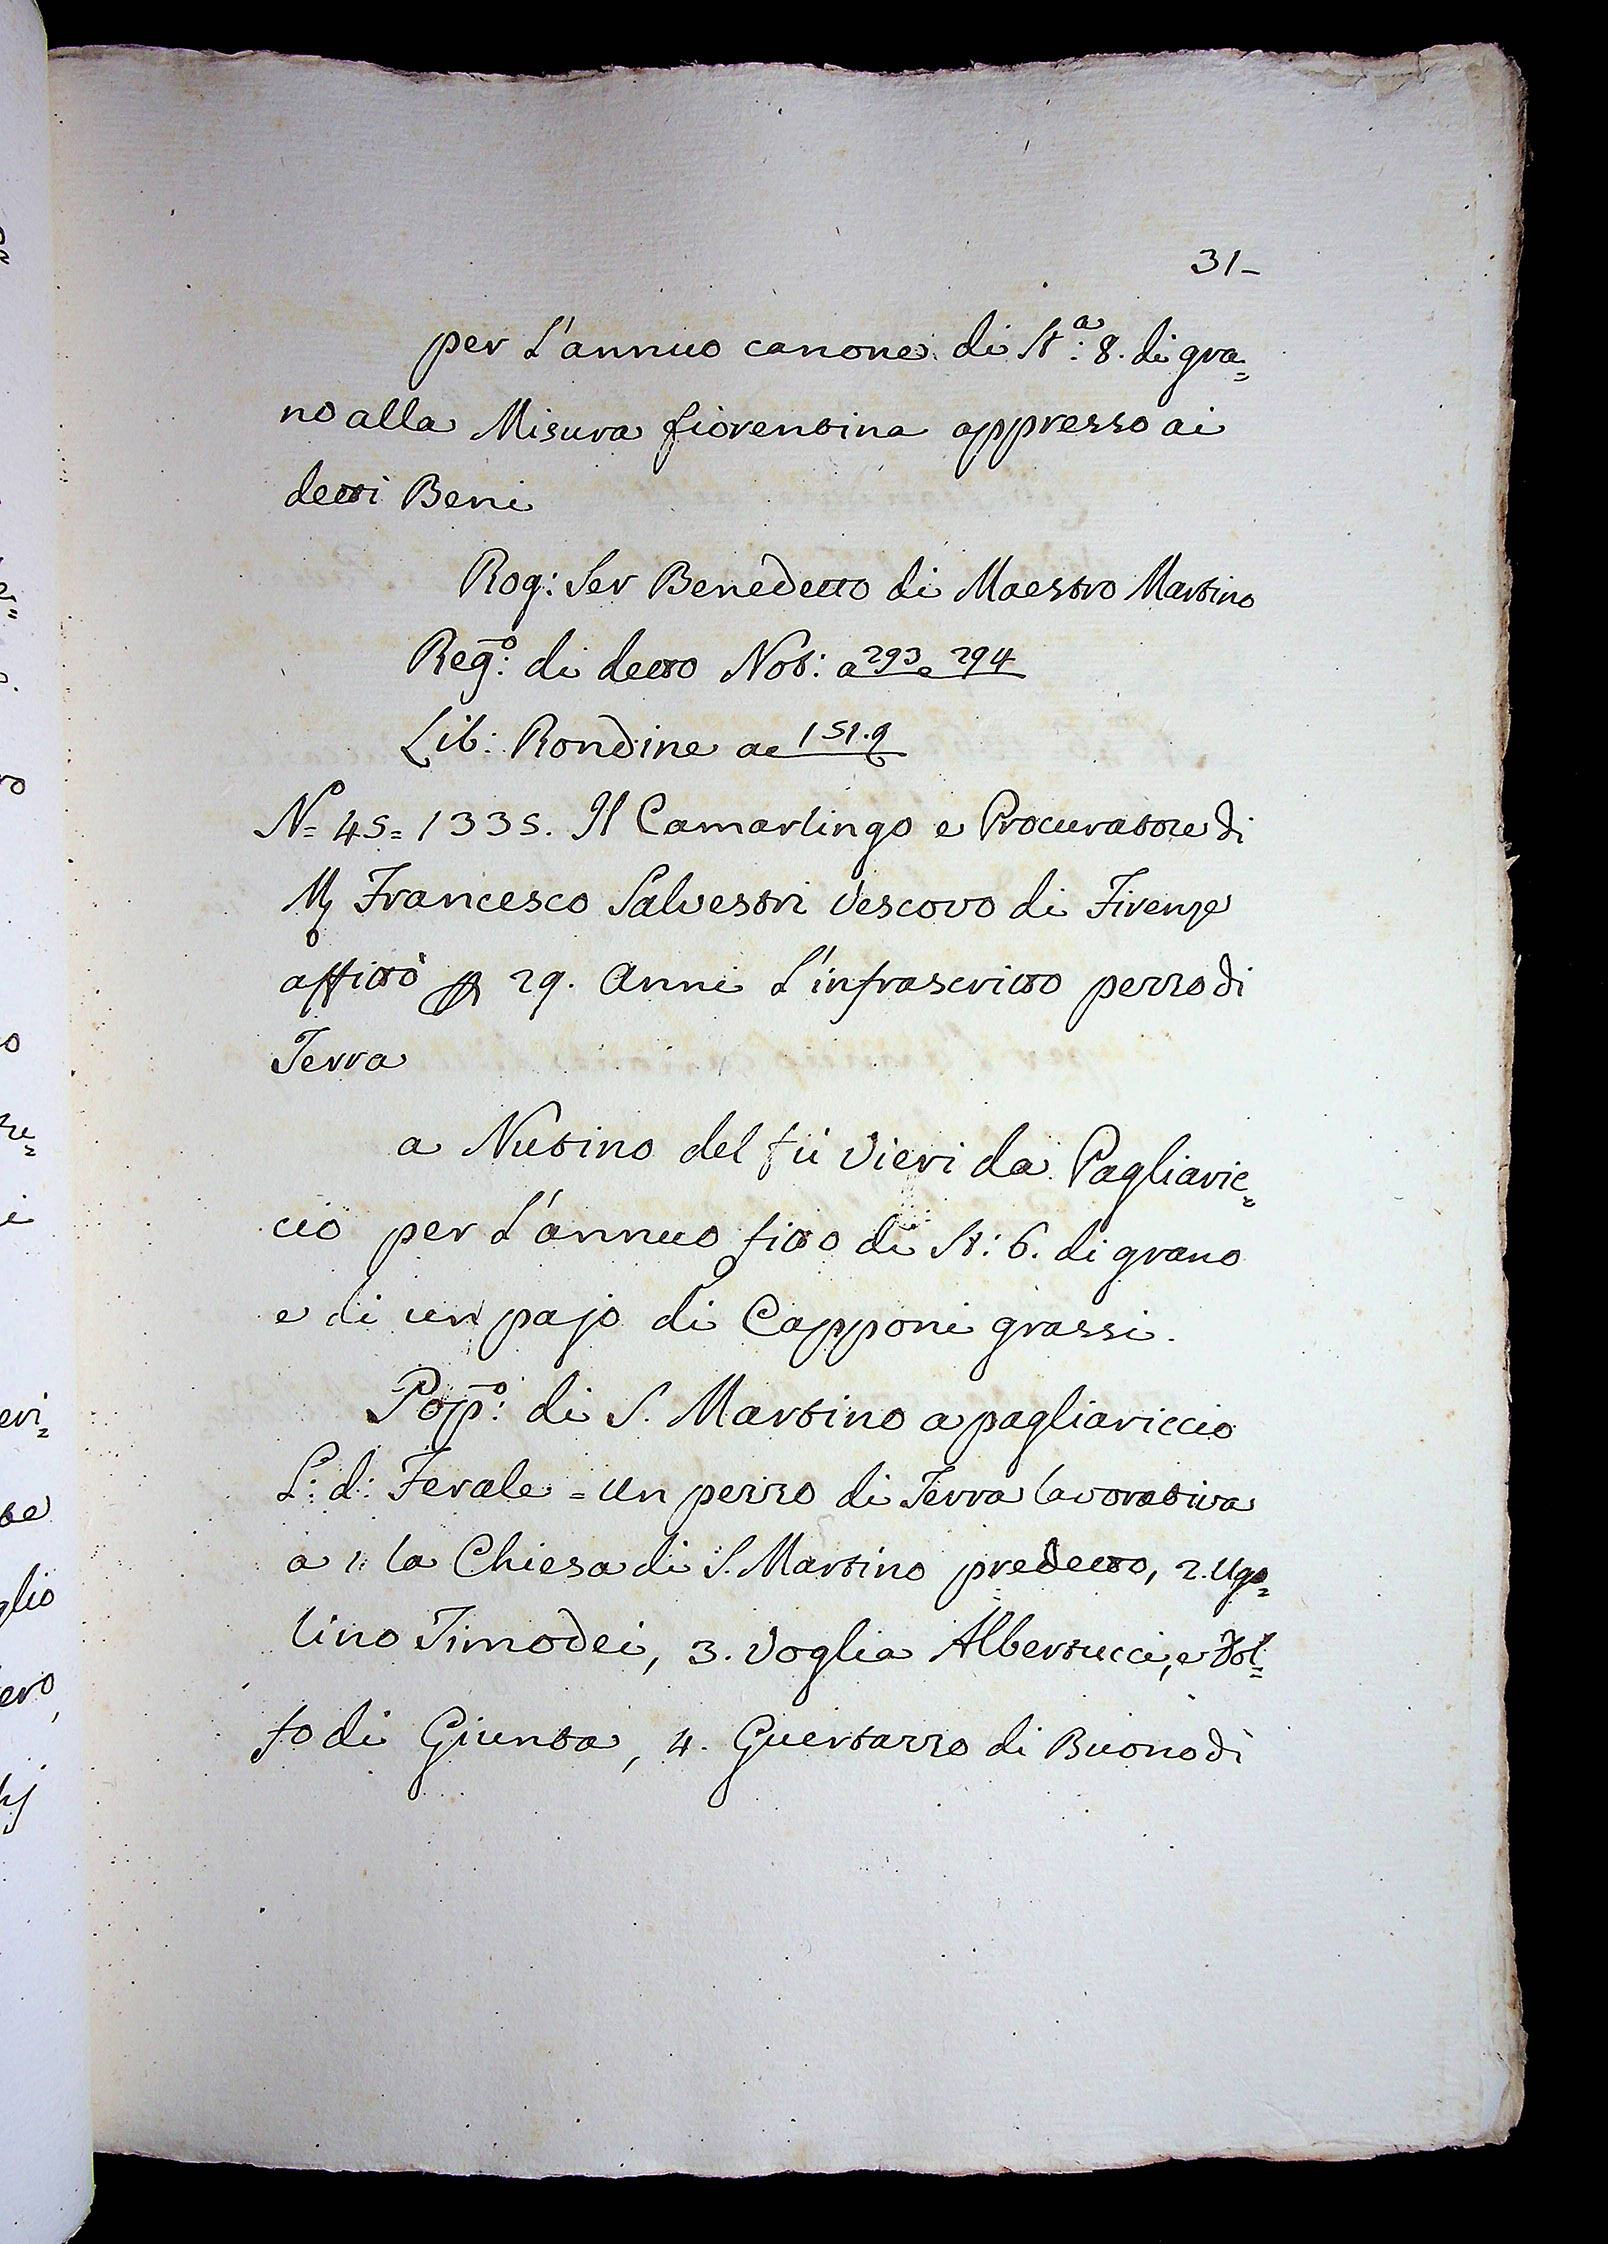 31_
per l'annuo canone di St:ª 8. di gra=
no alla Misura fiorentina appresso ai
detti Beni
Rog: Ser Benedetto di Maestro Martino
Reg:º di detto Not: a 293 e 294
Lib: Rondine ac 151.9
Nº= 45= 1335. Il Camarlingo e Procuratore di
Francesco Salvestri Vescovo di Firenze
affittò p 29. Anni l'infrascritto pezzo di
Terra
a Nutino del fù Vieri da Pagliaric=
cio per l'annuo fitto di St: 6. di grano
e di un pajo di Capponi grassi.
Pop:º di S. Martino a pagliariccio
L: d: Ferale = un pezzo di Terra lavorativa
a 1: la Chiesa di S. Martino predetto, 2. Ugo=
lino Timodei, 3. Voglia Albertucci, e
fo di Giunta, 4. Guertazzo di Buonodì